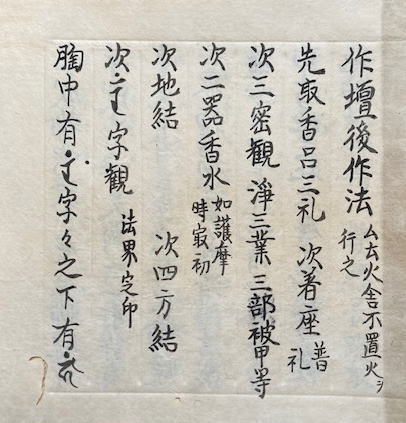 作壇後作法 ム云火舎不置火ヲ行之
先取香呂三礼 次着座 普礼
次三密觀 淨三業 三部被甲等
次二器香水 如護摩時㝡初
次地結 次四方結
次字觀 法界定印
胸中有字々之下有